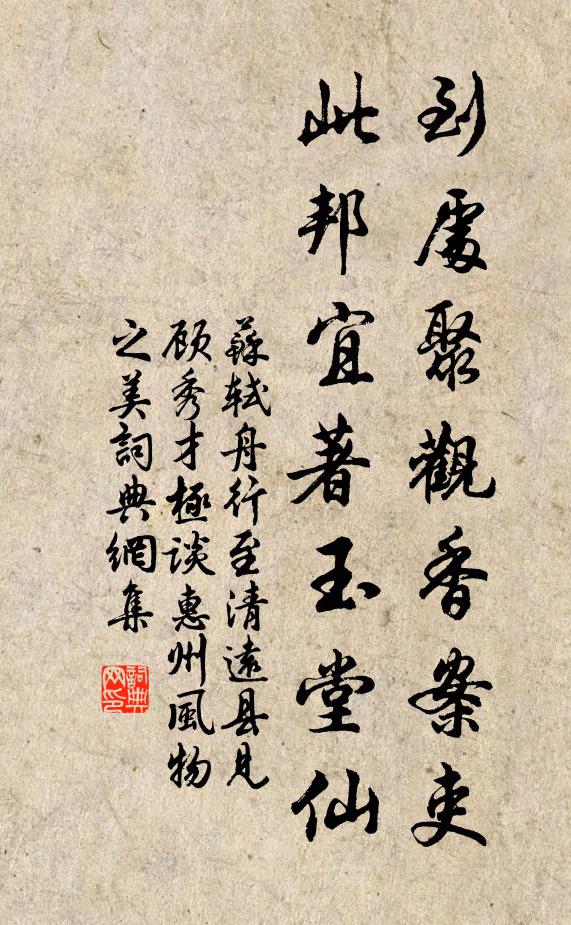 到處聚觀香案吏
此邦宜著玉堂仙
蘇軾舟行至清遠县見
顾秀才極谈惠州風物
之美詞典網集
詞典网印